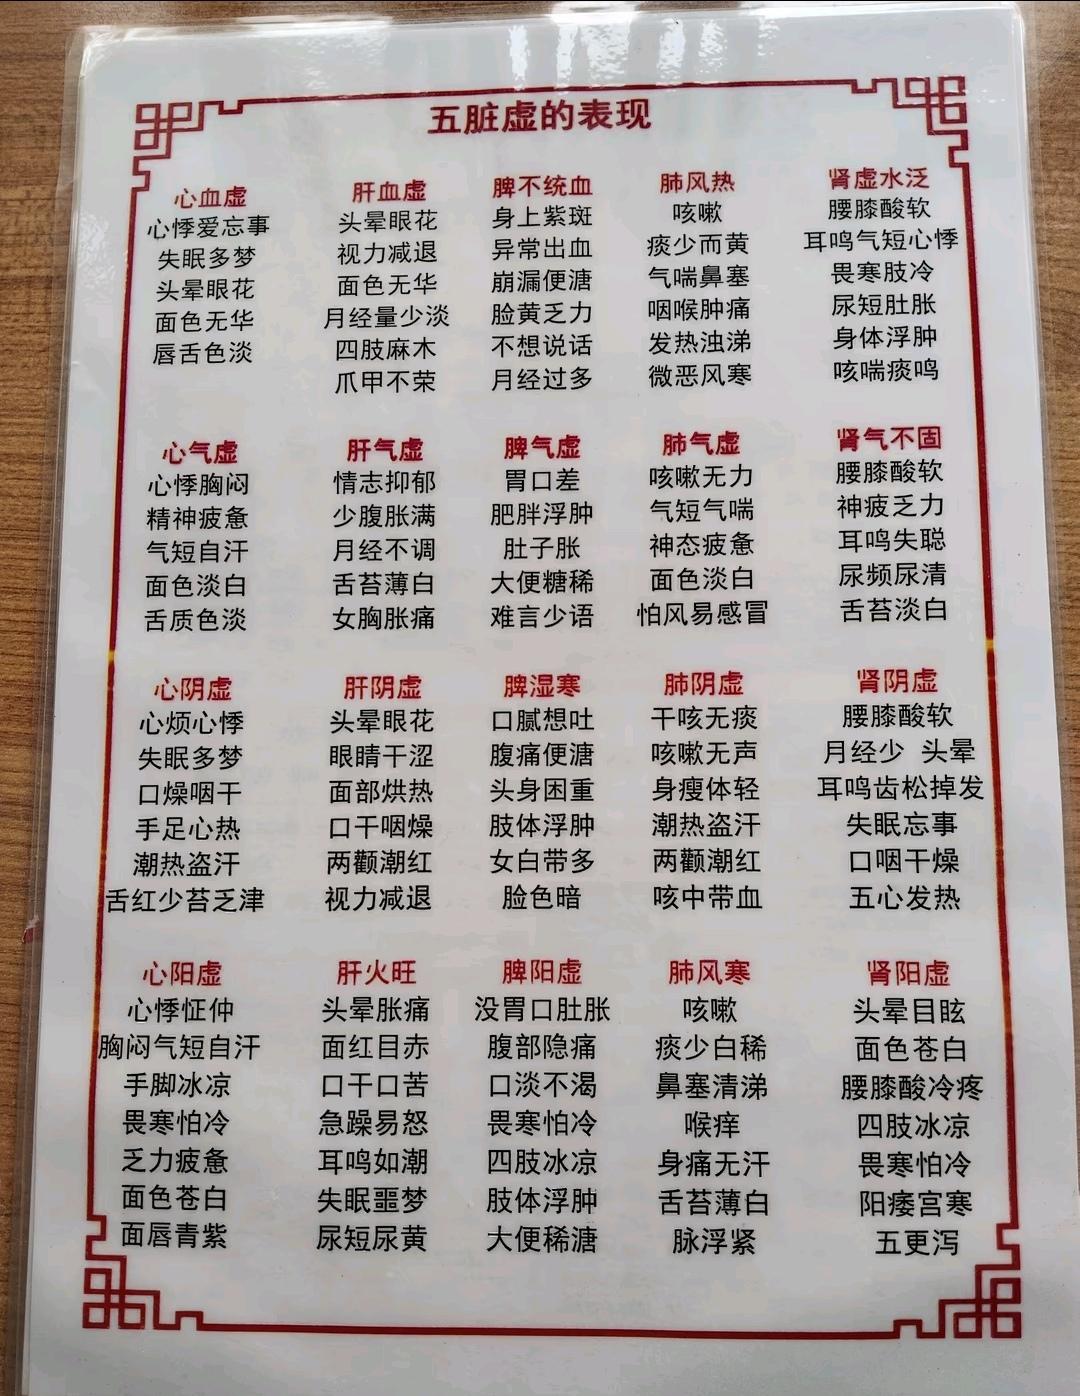 五脏虚的表现
心血虚
心悸爱忘事
失眠多梦
头晕眼花
面色无华
唇舌色淡
肝血虚
头晕眼花
视力减退
面色无华
月经量少淡
四肢麻木
爪甲不荣
脾不统血
身上紫斑
异常出血
崩漏便溏
脸黄乏力
不想说话
月经过多
肺风热
咳嗽
痰少而黄
气喘鼻塞
咽喉肿痛
发热浊涕
微恶风寒
肾虚水泛
腰膝酸软
耳鸣气短心悸
畏寒肢冷
尿短肚胀
身体浮肿
咳喘痰鸣
心气虚
心悸胸闷
精神疲惫
气短自汗
面色淡白
舌质色淡
肝气虚
情志抑郁
少腹胀满
月经不调
舌苔薄白
女胸胀痛
脾气虚
胃口差
肥胖浮肿
肚子胀
大便糖稀
难言少语
肺气虚
咳嗽无力
气短气喘
神态疲惫
面色淡白
怕风易感冒
肾气不固
腰膝酸软
神疲乏力
耳鸣失聪
尿频尿清
舌苔淡白
心阴虚
心烦心悸
失眠多梦
口燥咽干
手足心热
潮热盗汗
舌红少苔乏津
肝阴虚
头晕眼花
眼睛干涩
面部烘热
口干咽燥
两颧潮红
视力减退
脾湿寒
口腻想吐
腹痛便溏
头身困重
肢体浮肿
女白带多
脸色暗
肺阴虚
干咳无痰
咳嗽无声
身瘦体轻
潮热盗汗
两颧潮红
咳中带血
肾阴虚
腰膝酸软
月经少 头晕
耳鸣齿松掉发
失眠忘事
口咽干燥
五心发热
心阳虚
心悸怔仲
胸闷气短自汗
手脚冰凉
畏寒怕冷
乏力疲惫
面色苍白
面唇青紫
肝火旺
头晕胀痛
面红目赤
口干口苦
急躁易怒
耳鸣如潮
失眠噩梦
尿短尿黄
脾阳虚
没胃口肚胀
腹部隐痛
口淡不渴
畏寒怕冷
四肢冰凉
肢体浮肿
大便稀溏
肺风寒
咳嗽
痰少白稀
鼻塞清涕
喉痒
身痛无汗
舌苔薄白
脉浮紧
肾阳虚
头晕目眩
面色苍白
腰膝酸冷疼
四肢冰凉
畏寒怕冷
阳痿宫寒
五更泻